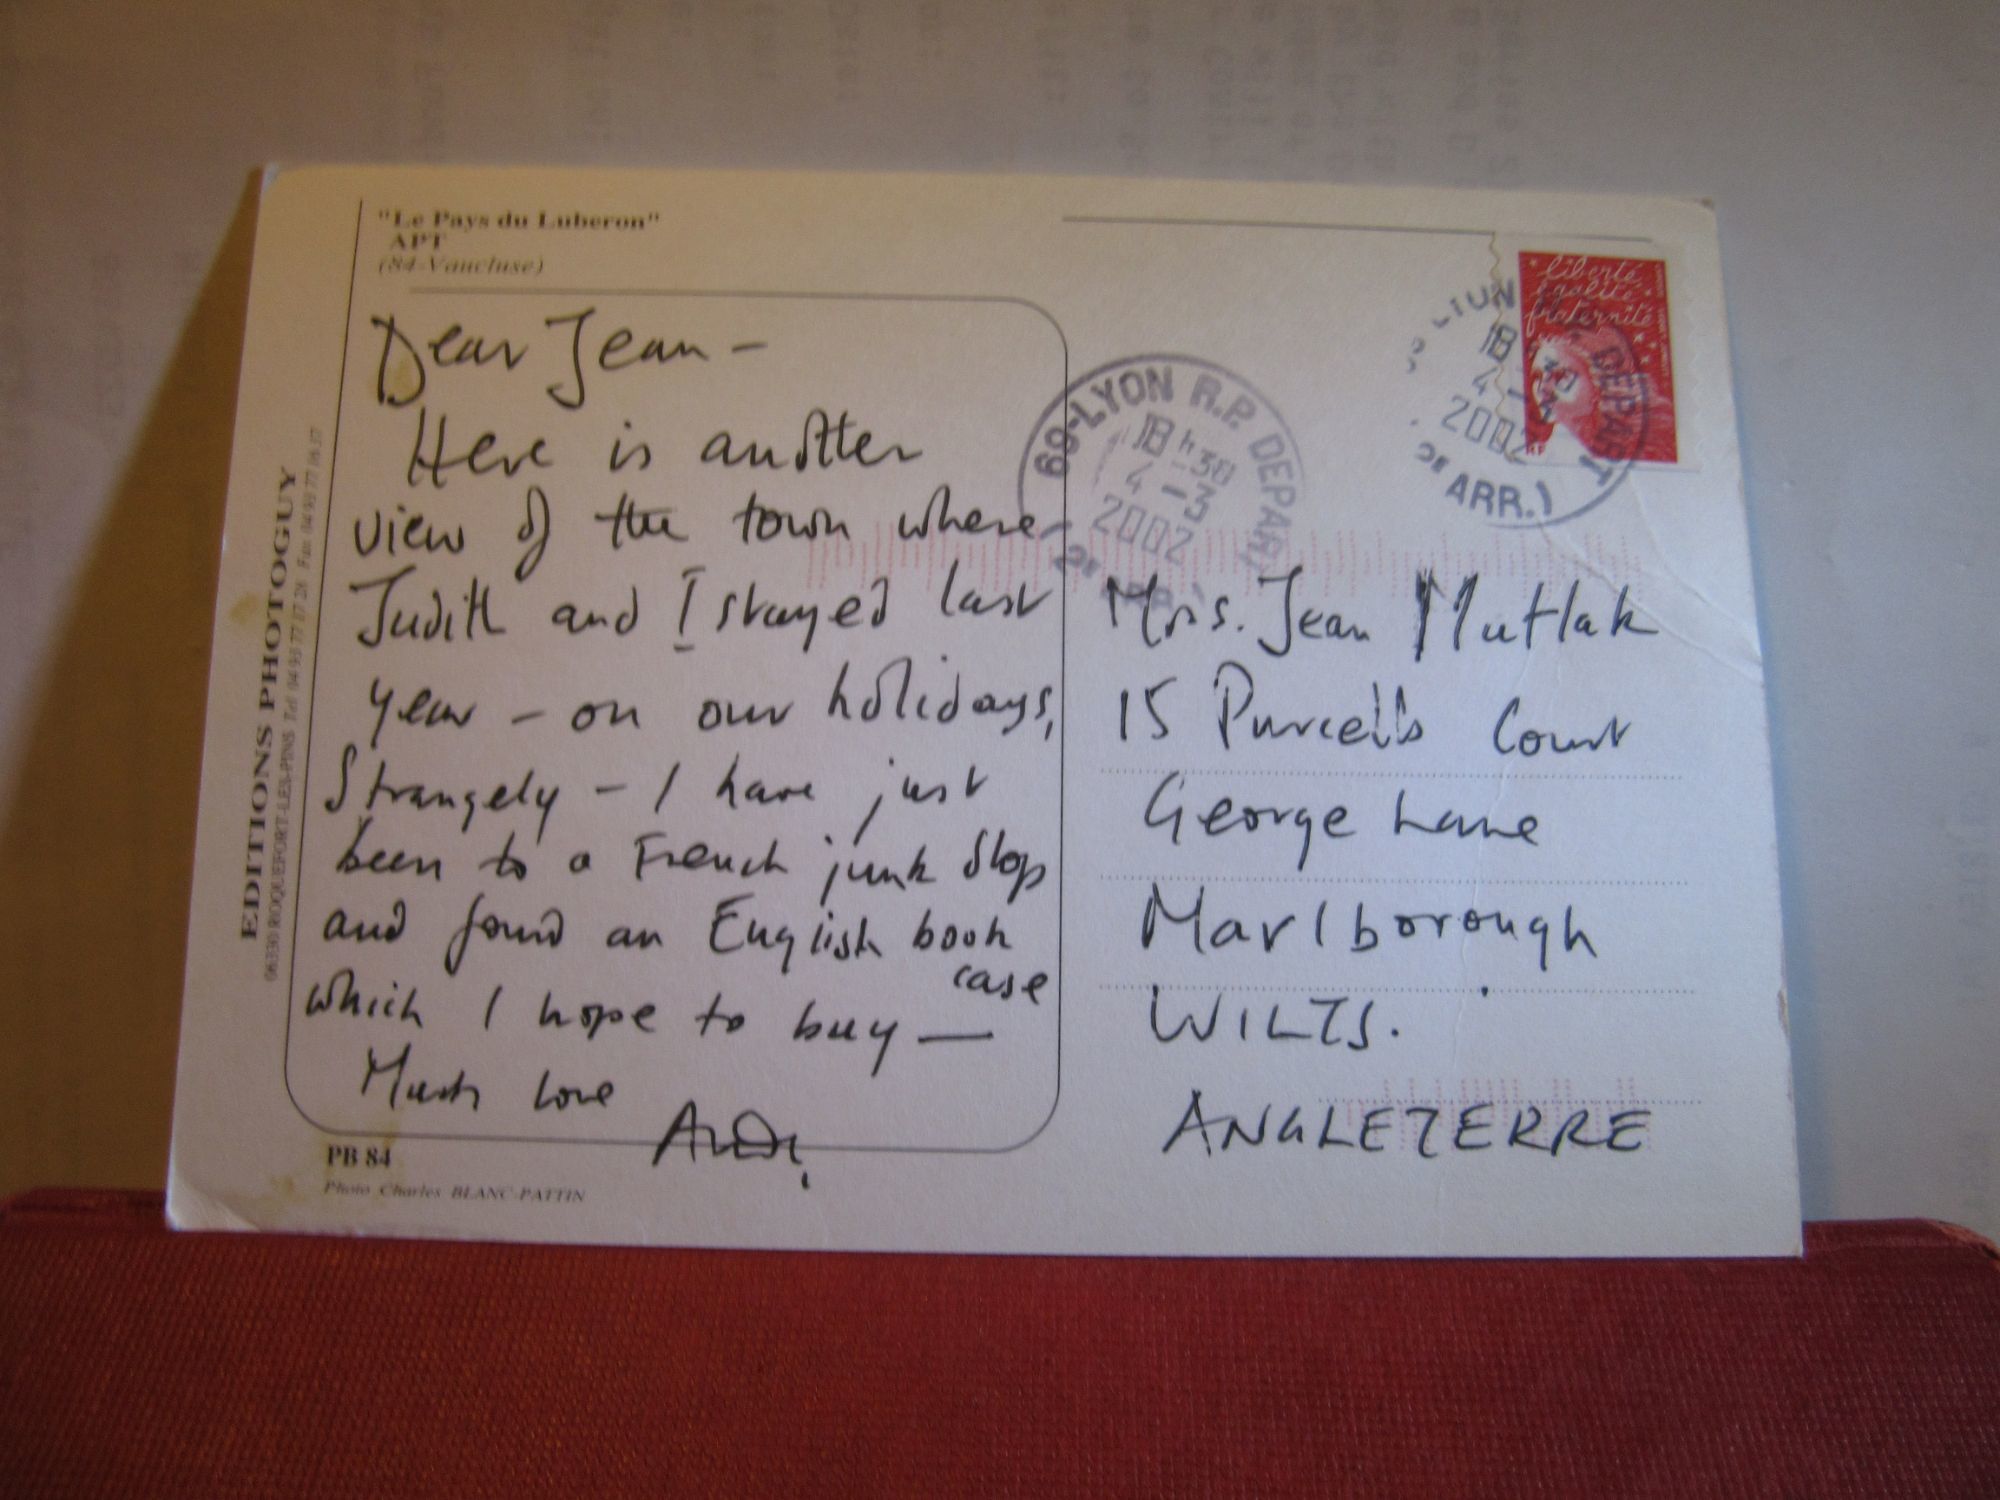 "Le Pays du Luberon"
APT
(84-Vaucluse)
Dear Jean -
Here is another
view of the town where
Judith and I stayed last
year - on our holidays,
Strangely - I have just
been to a French junk shop
and found an English book
case
which I hope to buy —
Much love
PB 84
Photo Charles BLANC-PATTIN
EDITIONS PHOTOGUY
06330 ROQUEFORT-LES-PINS Tel (04) 93 77 17 28 Fax (04) 93 77 06 37
69-LYON R.P. DEPART
18 H 30
4 - 3
2002
liberté
égalité
fraternité
RF
DEPART
18
4
2002
ARR.)
Mrs. Jean Mutlak
15 Purcells Court
George Lane
Marlborough
WILTS.
ANGLETERRE